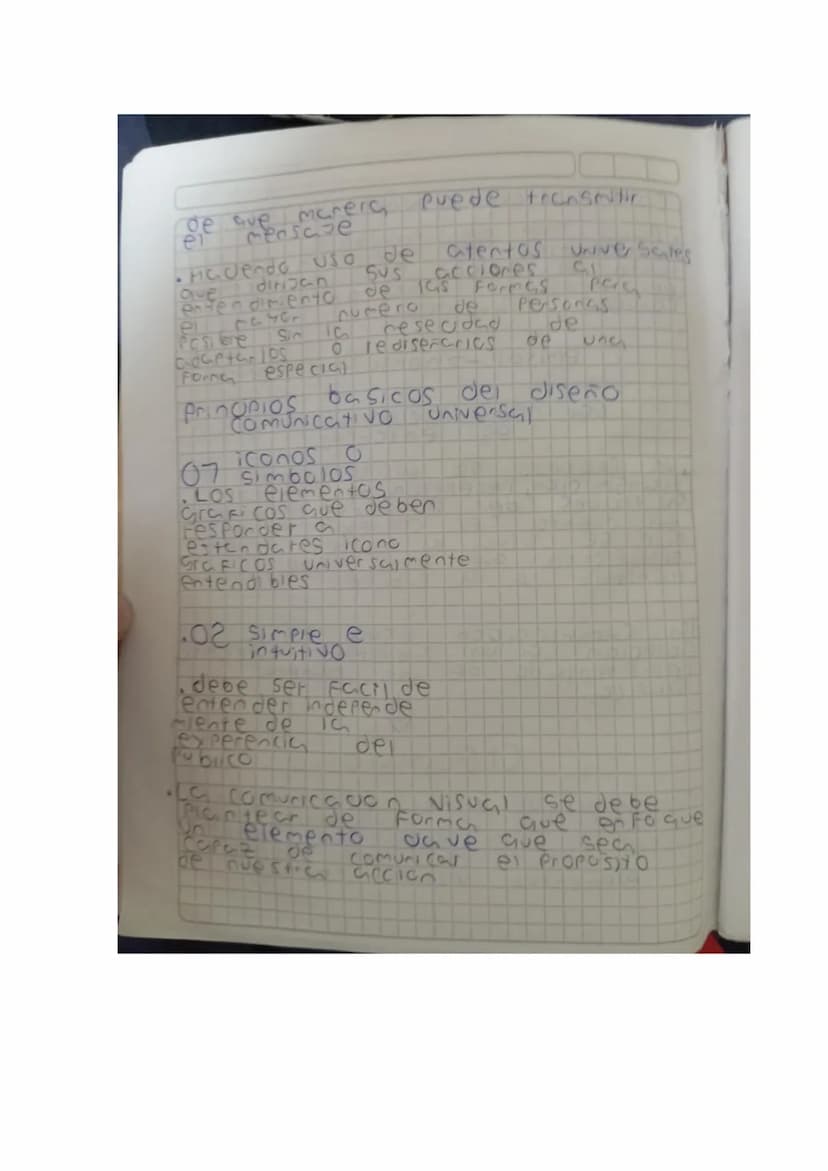 de que manera puede transmitir
el mensaje
. Haciendo uso de atentos universales
que dirijan sus acciones al
entendimiento de las formas para
el mayor numero de personas
posible sin la nesecidad de
adaptarlos o rediseñarlos de una
forma especial
Principios basicos del diseño
comunicativo universal
01 iconos o
simbolos
. Los elementos
Graficos que deben
responder a
estandares icono
graficos universalmente
entendibles
.02 simple e
intuitivo
. debe ser facil de
entender independe
miente de la
experencia del
publico
. La comunicacion visual se debe
plantear de forma que enfoque
un elemento clave que sea
capaz de comunicar el proposito
de nuestra accion